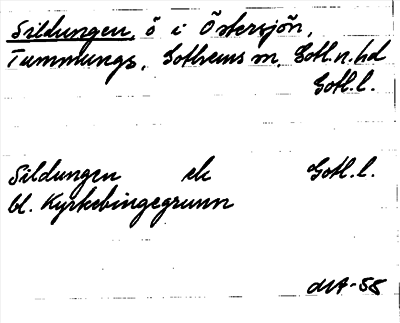 Sildungen, ö i Östersjön,
Tummungs, Gothems sn, Gotl.n.hd
Gotl.l.
Sildungen ek Gotl.l.
bl. Kyrkebingegrunn